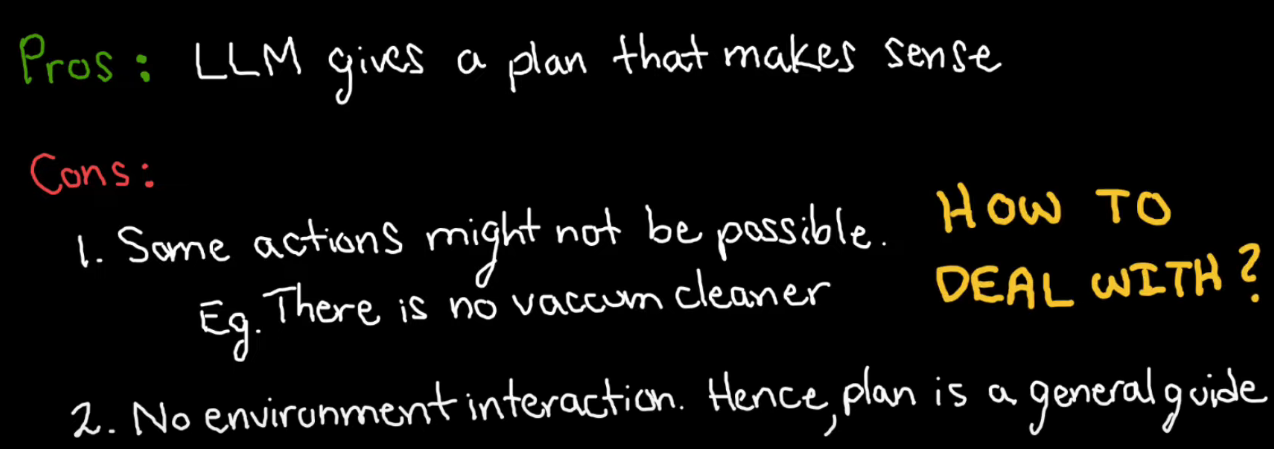 Pros: LLM gives a plan that makes sense
Cons:
1. Some actions might not be possible.
Eg. There is no vaccum cleaner
HOW TO
DEAL WITH?
2. No environment interaction. Hence, plan is a general guide